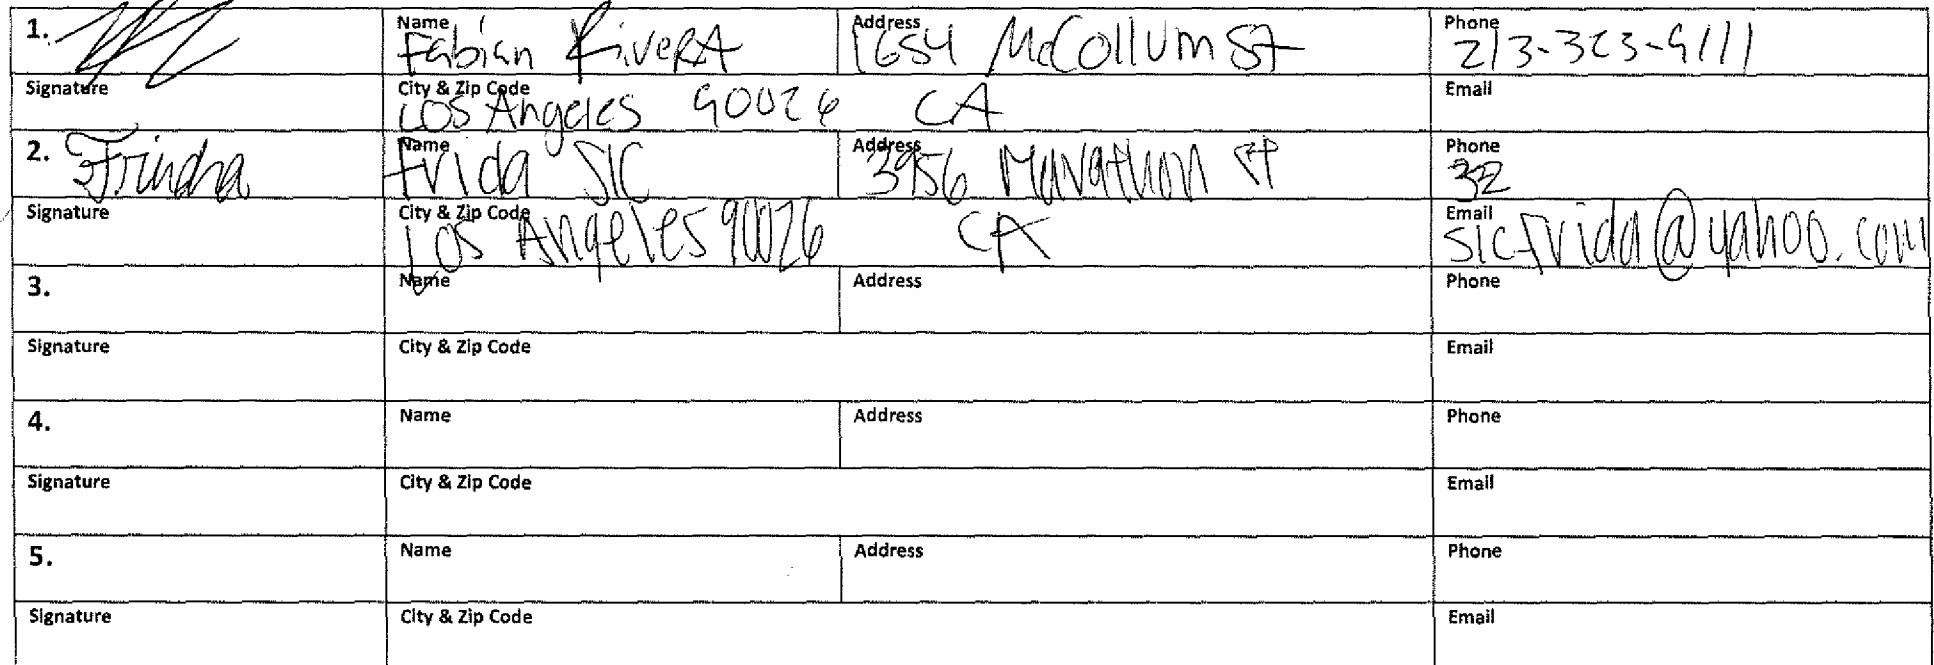 1. Name Address Phone
Fabian RiveRA 1654 McCollum St 213-323-9111
Signature City & Zip Code Email
Los Angeles 90026 CA
2. Name Address Phone
Frida SIC 3956 Marathon St 32
Signature City & Zip Code Email
Los Angeles 90026 CA sicfrida@yahoo.com
3. Name Address Phone
Signature City & Zip Code Email
4. Name Address Phone
Signature City & Zip Code Email
5. Name Address Phone
Signature City & Zip Code Email